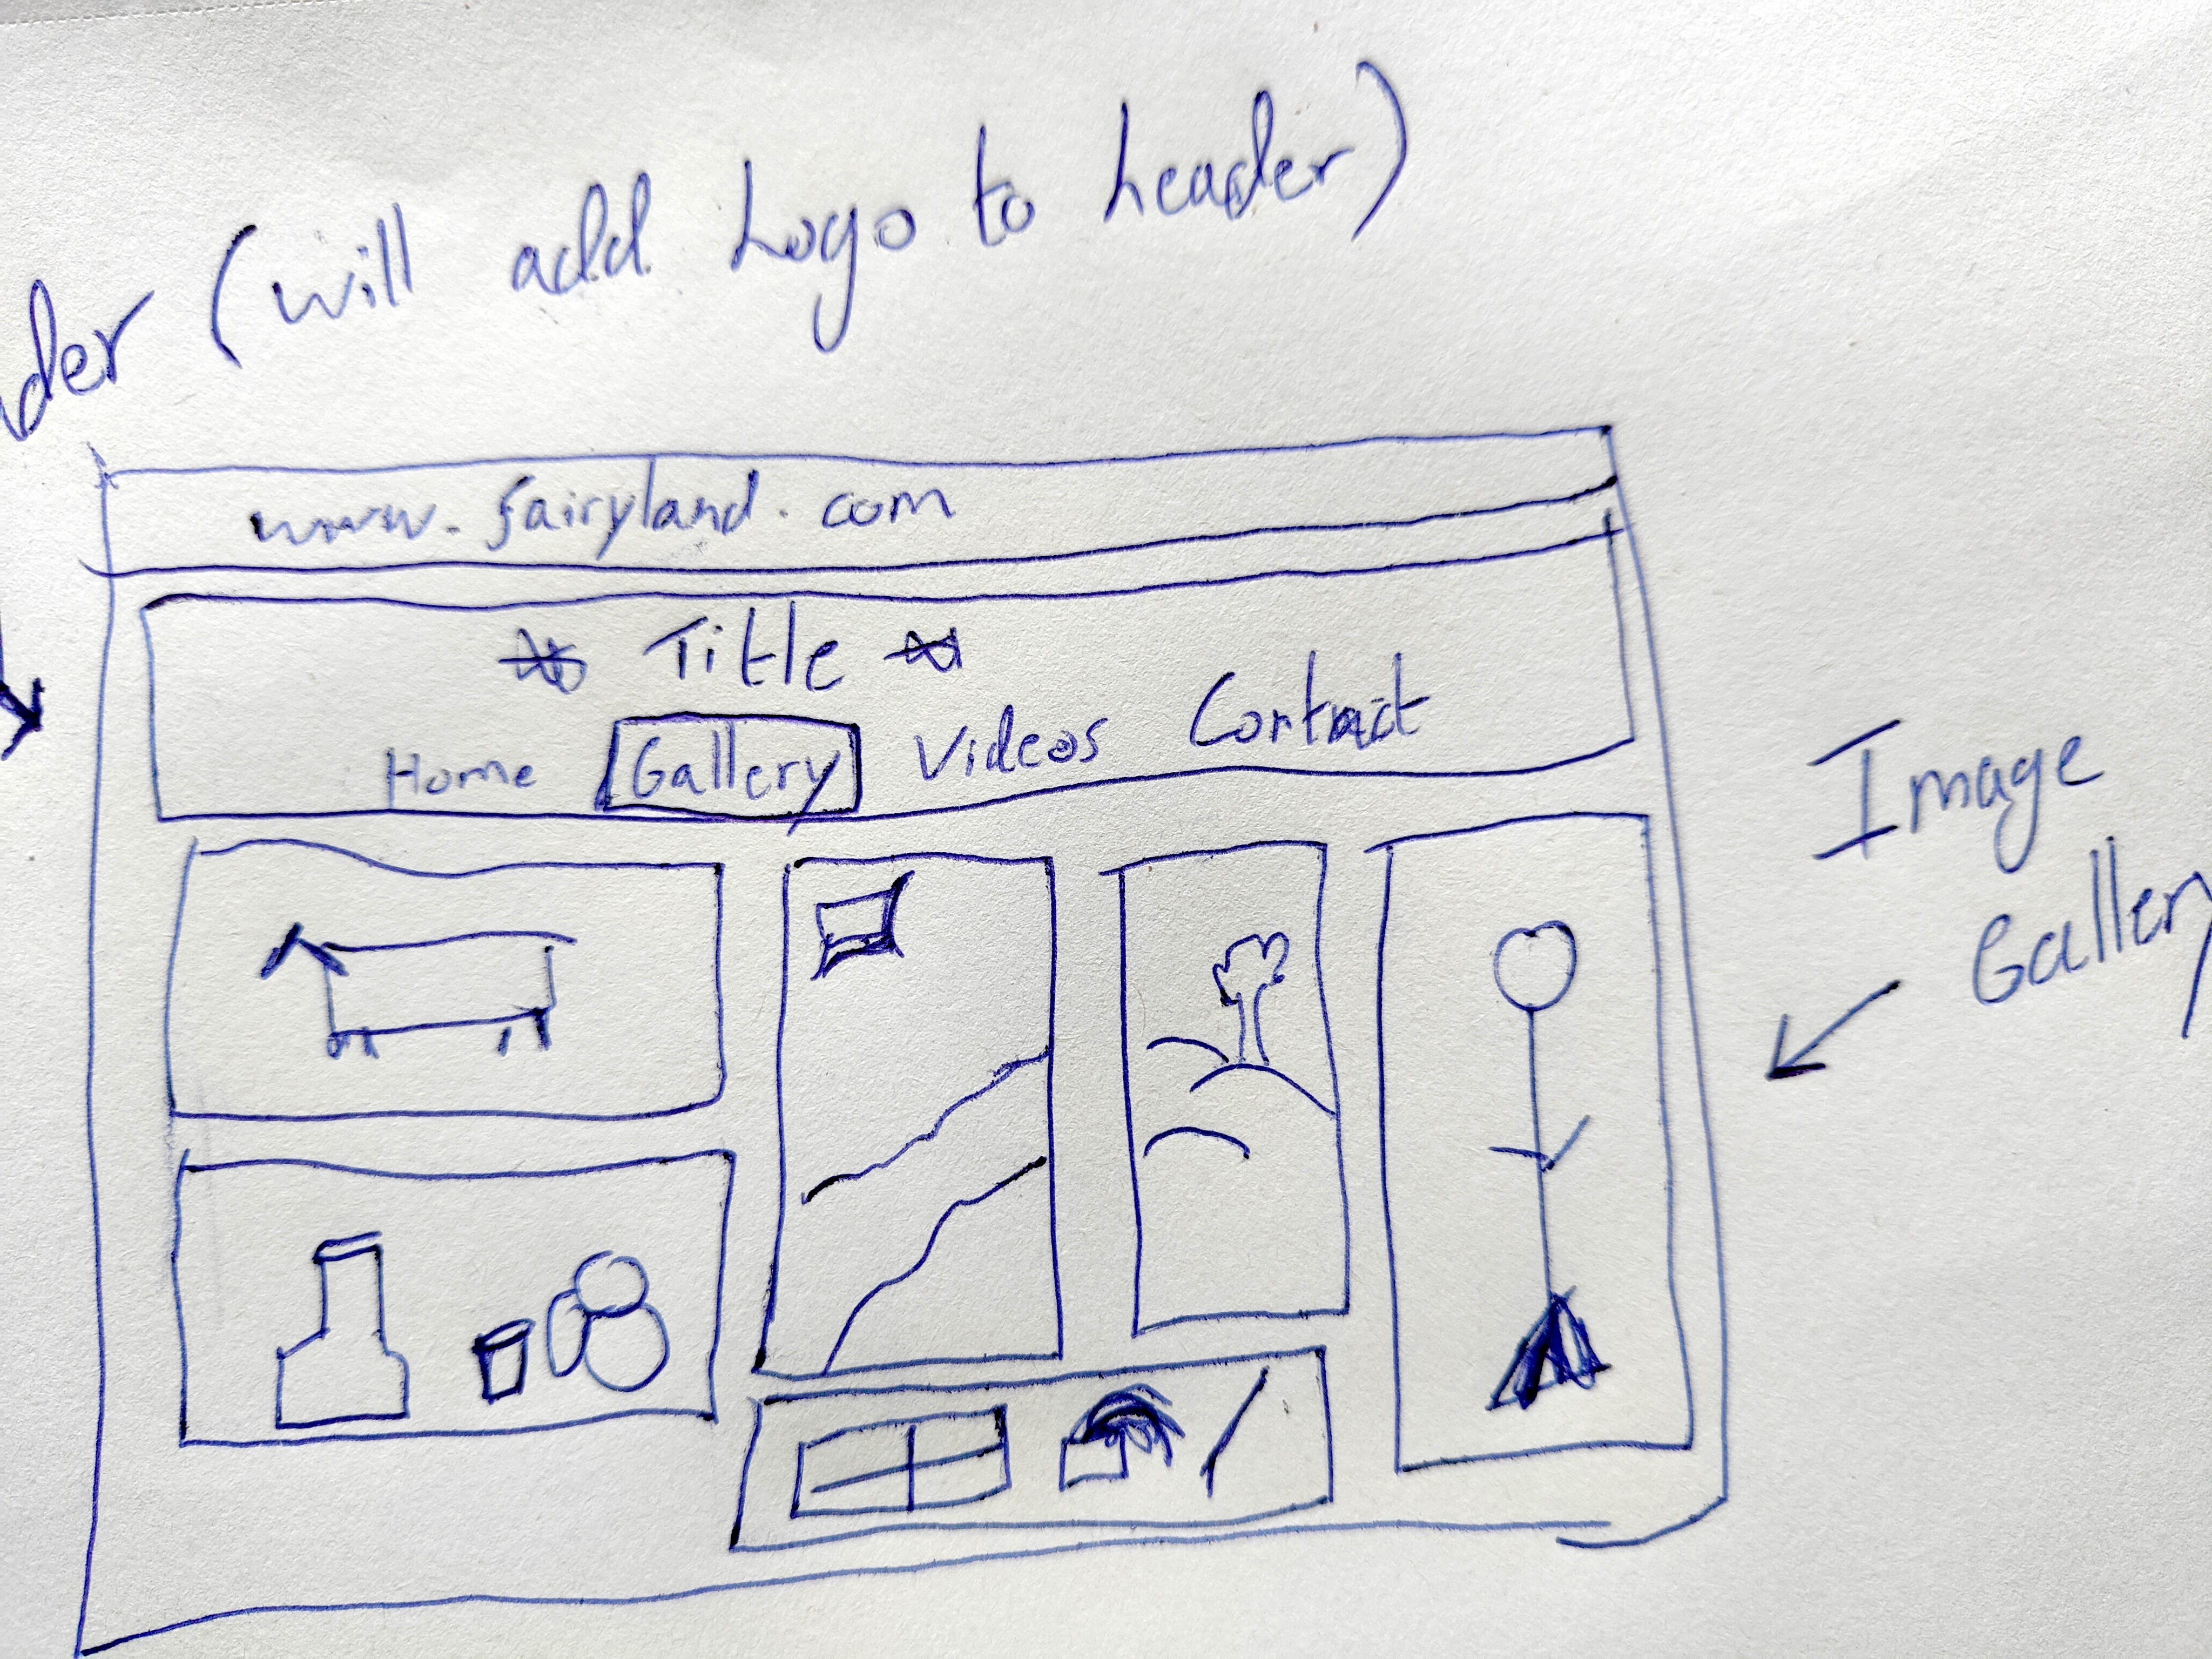 der (will add Logo to header)
www.fairyland.com
Title
Home Gallery Videos Contact
Image
Gallery